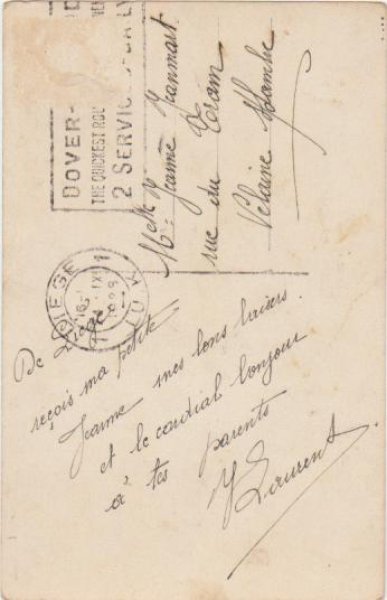 DOVER-
THE QUICKEST ROU
2 SERVICES
LIEGE 1
LUIK
IX
Melle J
Jeanne Jeanmart
rue du Tram
Velaine s/Sambre
De Liège
reçois ma petite
Jeanne mes bons baisers.
et le cordial bonjour
à tes parents
J Laurent